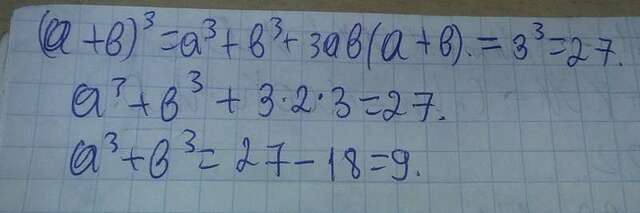 (a+b)³=a³+b³+3ab(a+b).=3³=27.
a³+b³+3·2·3=27.
a³+b³=27-18=9.